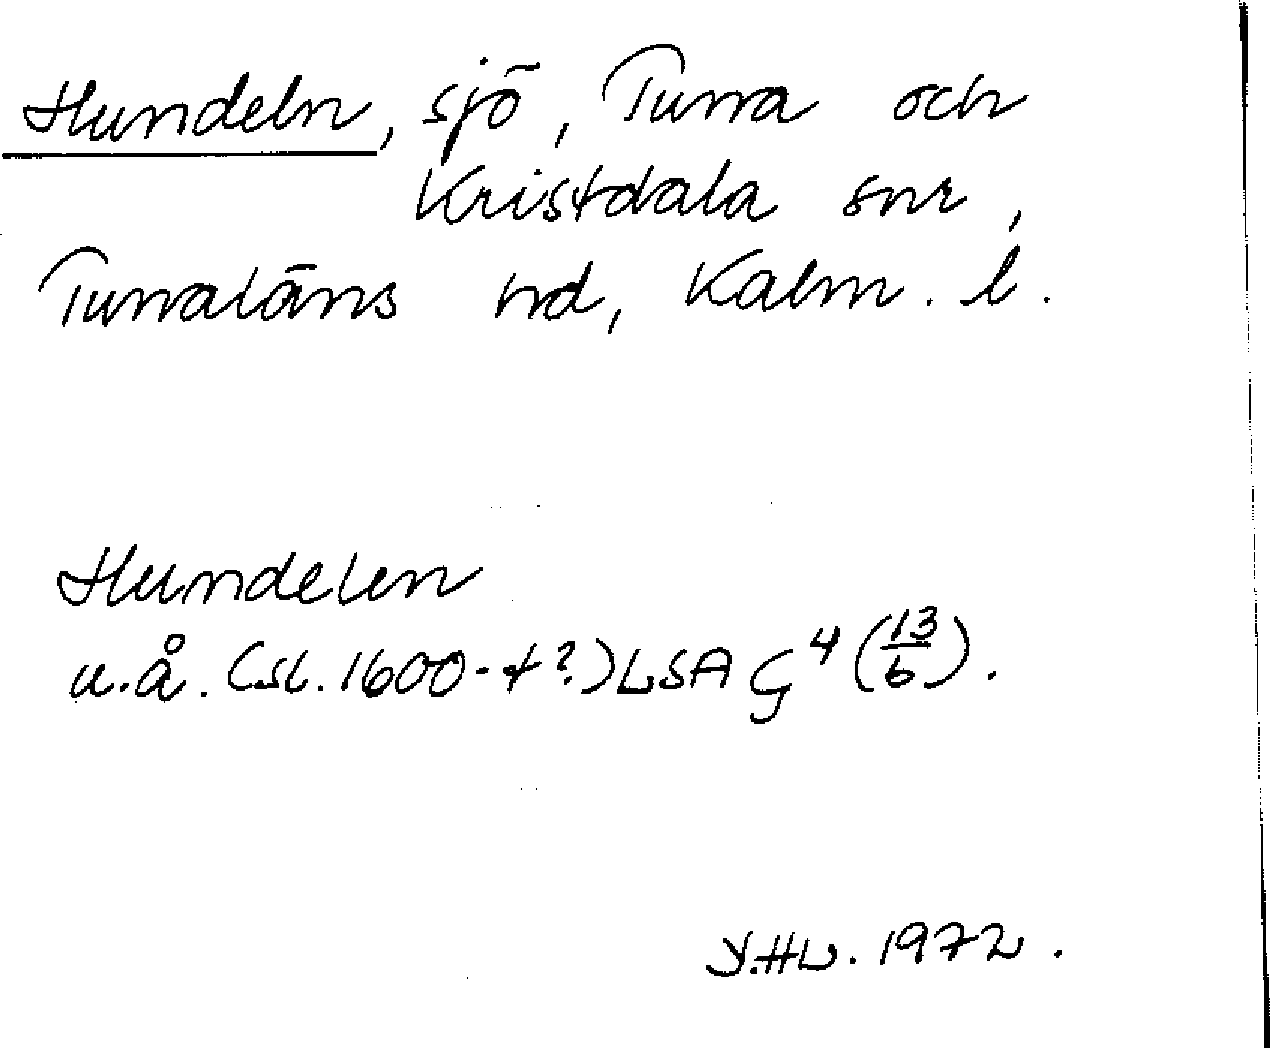 Hundeln, sjö, Tuna och
Kristdala snr,
Tunaläns hd, Kalm. l.
Hundelen
u.å. (sl. 1600-t?) LSA G 4 (13/6).
Y.HL. 1972.